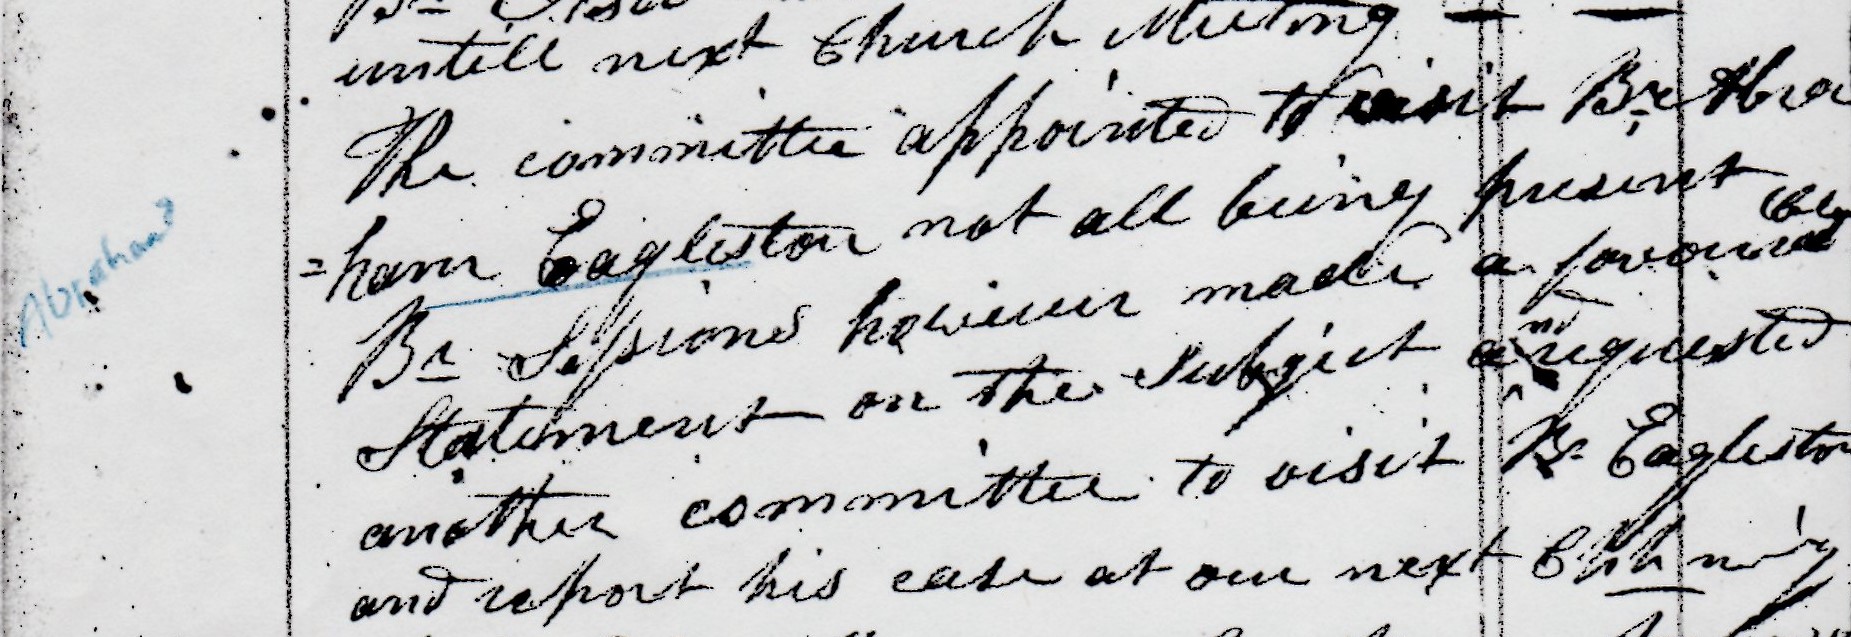 untill next Church Meeting — —
The committee appointed to visit Br Abra
=ham Eagleston not all being present
Br Sessions however made a favourable
Statement on the Subject and requested
another committee to visit Br Eagleston
and report his case at our next Chh m'g
Abraham